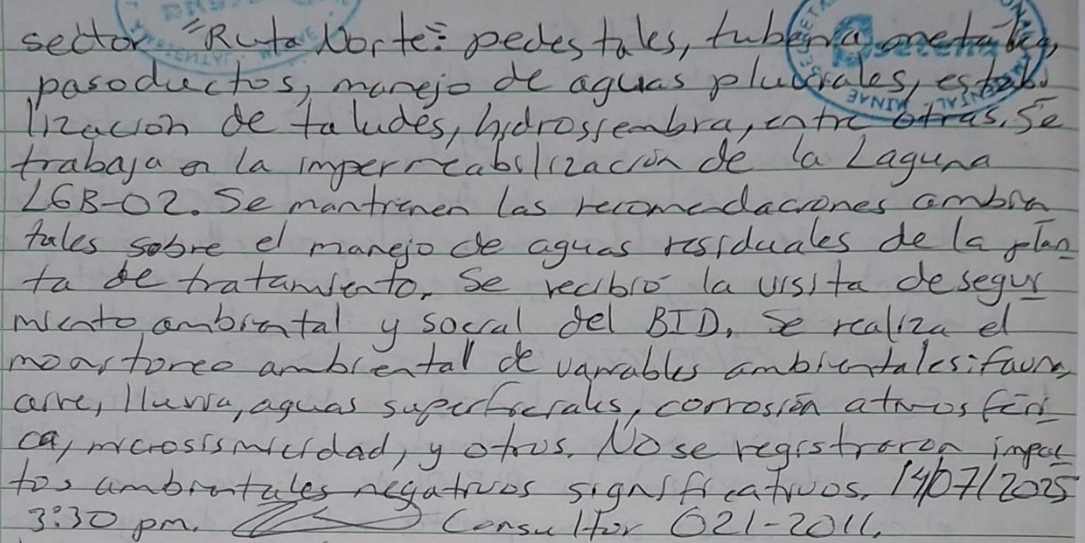 sector "Ruta Norte": pedestales, tubería metálica,
pasoductos, manejo de aguas pluviales, estabi
lización de taludes, hidrosiembra, entre otras. Se
trabaja en la impermeabilización de la Laguna
LGB-02. Se mantienen las recomendaciones ambien
tales sobre el manejo de aguas residuales de la plan
ta de tratamiento. Se recibió la visita de segui
miento ambiental y social del BID. Se realiza el
monitoreo ambiental de variables ambientales: fauna,
aire, lluvia, aguas superficiales, corrosión atmosféri
ca, microsismicidad, y otros. No se registraron impac
tos ambientales negativos significativos. 14/07/2025
3:30 pm. Consultor 021-2011.